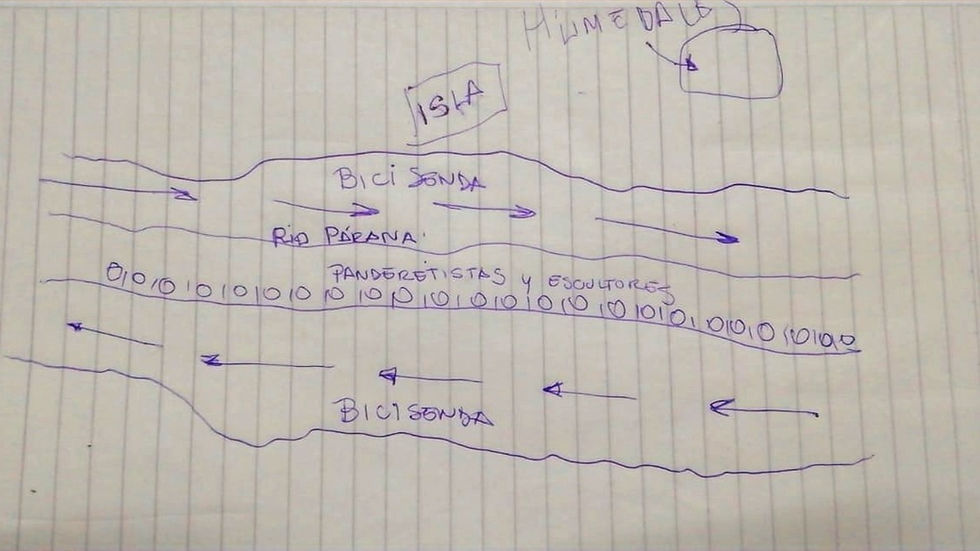 HUMEDALES
ISLA
BICI SENDA
RIO PÁRANA
PANDERETISTAS Y ESCULTORES
BICI SENDA